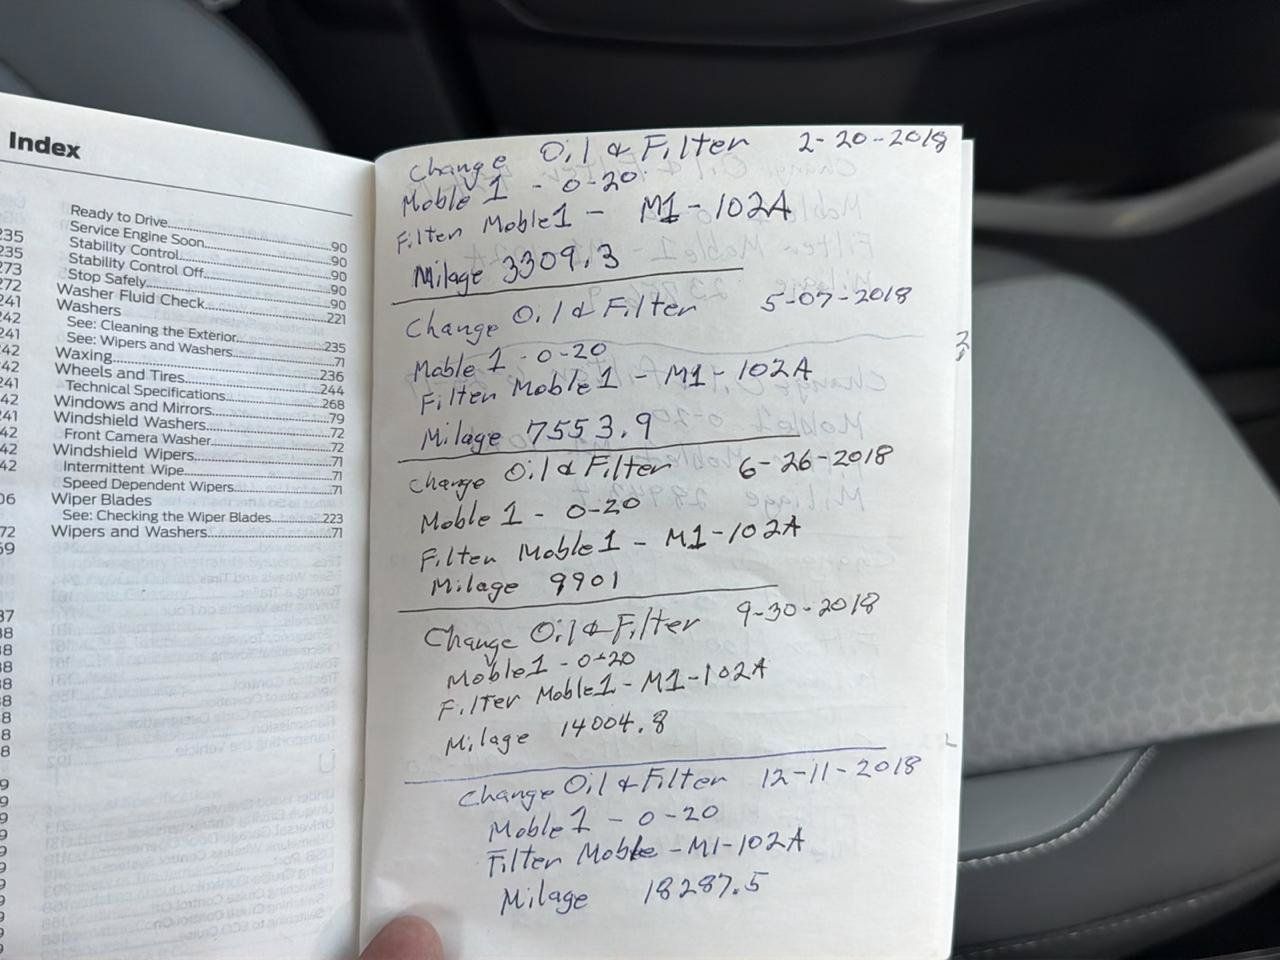 Index
Ready to Drive
Service Engine Soon 90
Stability Control 90
Stability Control Off 90
Stop Safely 90
Washer Fluid Check 90
Washers 221
See: Cleaning the Exterior 235
See: Wipers and Washers 71
Waxing 236
Wheels and Tires 244
Technical Specifications 268
Windows and Mirrors 79
Windshield Washers 72
Front Camera Washer 72
Windshield Wipers 71
Intermittent Wipe 71
Speed Dependent Wipers 71
Wiper Blades
See: Checking the Wiper Blades 223
Wipers and Washers 71
235
235
273
272
241
242
241
242
242
241
242
241
242
242
242
Change Oil & Filter 2-20-2018
Moble 1 - 0-20
Filter Moble1 - M1-102A
Milage 3309.3
Change Oil & Filter 5-07-2018
Moble 1 - 0-20
Filter Moble1 - M1-102A
Milage 7553.9
Change Oil & Filter 6-26-2018
Moble 1 - 0-20
Filter Moble1 - M1-102A
Milage 9901
Change Oil & Filter 9-30-2018
Moble1 - 0-20
Filter Moble1 - M1-102A
Milage 14004.8
Change Oil & Filter 12-11-2018
Moble 1 - 0-20
Filter Moble - M1-102A
Milage 18287.5